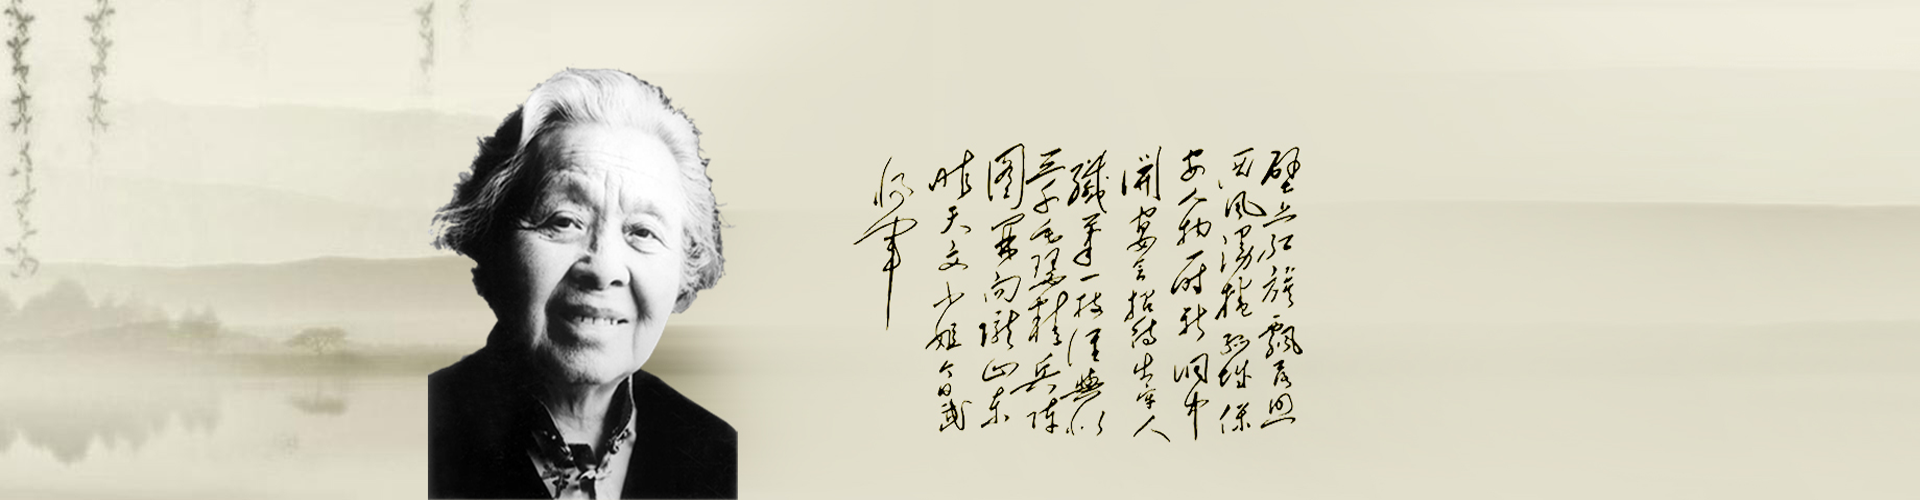 壁上红旗飄落照
西风漫捲孤城保
安人物一时新洞中
開宴会招待出牢人
纖笔一枝谁與似
三千毛瑟精兵陣
图開向隴山东
昨天文小姐今日武
将军